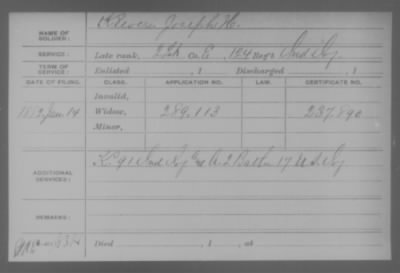 NAME OF SOLDIER: Revere Joseph H.
SERVICE: Late rank, Co. E, 124 Reg't Ind Inf
TERM OF SERVICE: Enlisted , 1 Discharged , 1
DATE OF FILING. CLASS. APPLICATION NO. LAW. CERTIFICATE NO.
Invalid,
Jan. 14 Widow, 289.113 237.890
Minor,
ADDITIONAL SERVICES: K. 91 Ind Inf A. 2 Batt'n 17 U.S. Inf
REMARKS:
Died , 1 , at